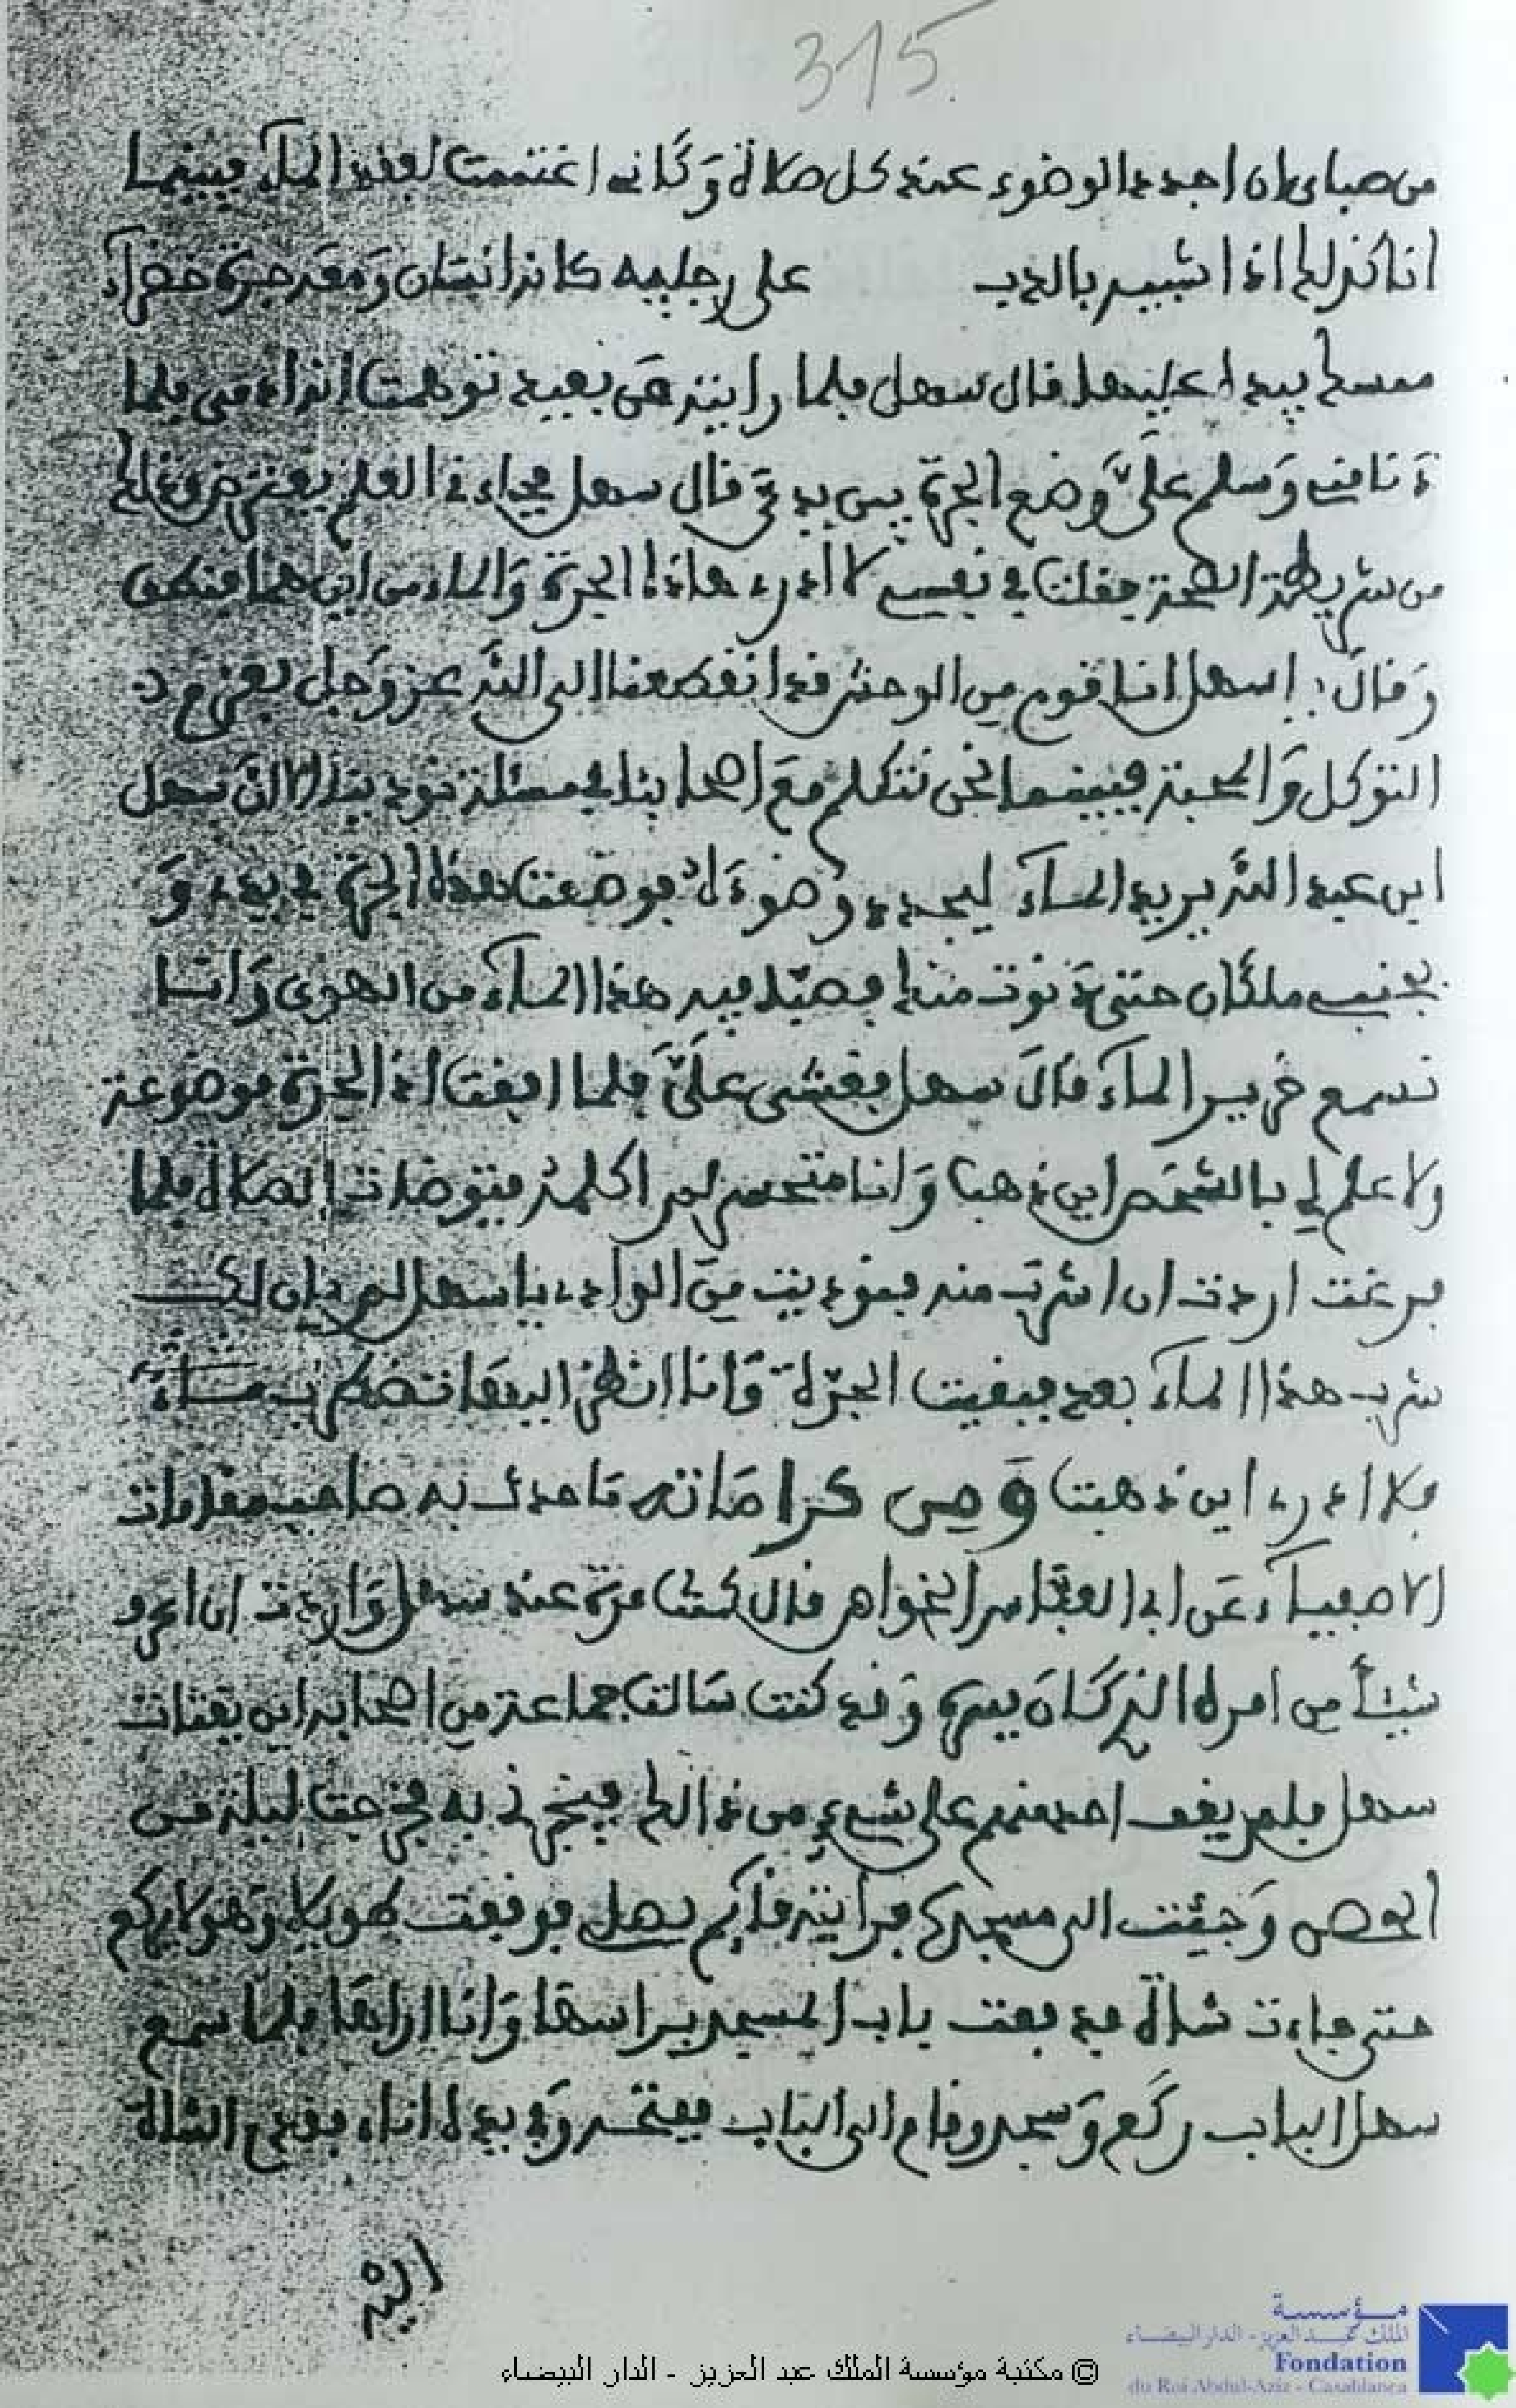 315
من صباي ان اجدد الوضوء عند كل صلاة وكانه اغتممت لفقد الماء فبينما
انا كذلك اذا شبيه بالدب على رجليه كانه انسان ومعه جرة خضراء
ممسك بيده عليها قال سهل فلما رايته من بعيد توهمت انه ادمي فلما
دنا مني وسلم علي وضع الجرة بين يدي قال سهل فجاءني العلم يعترض وذلك
من شريطة الصحة فقلت في نفسي لا ادري هاذا الجرة والماء من اين هما فنطق
وقال يا سهل انا قوم من الوحش قد انقطعنا الى الله عز وجل بعزم
التوكل والمحبة فبينما نحن نتكلم مع اصحابنا في مسئلة نودينا الا ان سهل
ابن عبد الله يريد الماء ليجدد وضوءه فوضعت هذه الجرة في يدي و
بجنبي ملكان حتى دنوت منك فصبا فيه هذا الماء من الهوى وانا
نسمع خرير الماء قال سهل فغشي علي فلما افقت اذا الجرة موضوعة
ولا علم لي بالشخص اين ذهب وانا متحسر لم اكلمه فتوضات للصلاة فلما
فرغت اردت ان اشرب منه فنوديت من الوادي يا سهل لم يان لك
شرب هذا الماء بعد فبقيت الجرة وانا انظر اليها تضطرب
فلا ادري اين ذهبت ومن كراماته ما حدث به صاحب مقامات
الاصفياء عن ابي العباس الخواص قال كنت مرة عند سهل واردت ان اعرف
شيئا من امره الذي كان يسره وقد كنت سالت جماعة من اصحابه اين يقتات
سهل فلم يقف احد منهم على شيء من ذالك فيخبرني به فخرجت ليلة من
الحص وجئت الى مسجده فرايته قائم يصل فوقفت طويلا وهو لا يركع
حتى جاءت شاة فدفعت باب المسجد براسها وانا اراها فلما سمع
سهل الباب ركع وسجد وقام الى الباب ففتحه وبيده اناء فقدم الشاة
اليه
© مكتبة مؤسسة الملك عبد العزيز - الدار البيضاء
مؤسسة
الملك عبد العزيز - الدار البيضاء
Fondation
du Roi Abdul-Aziz - Casablanca